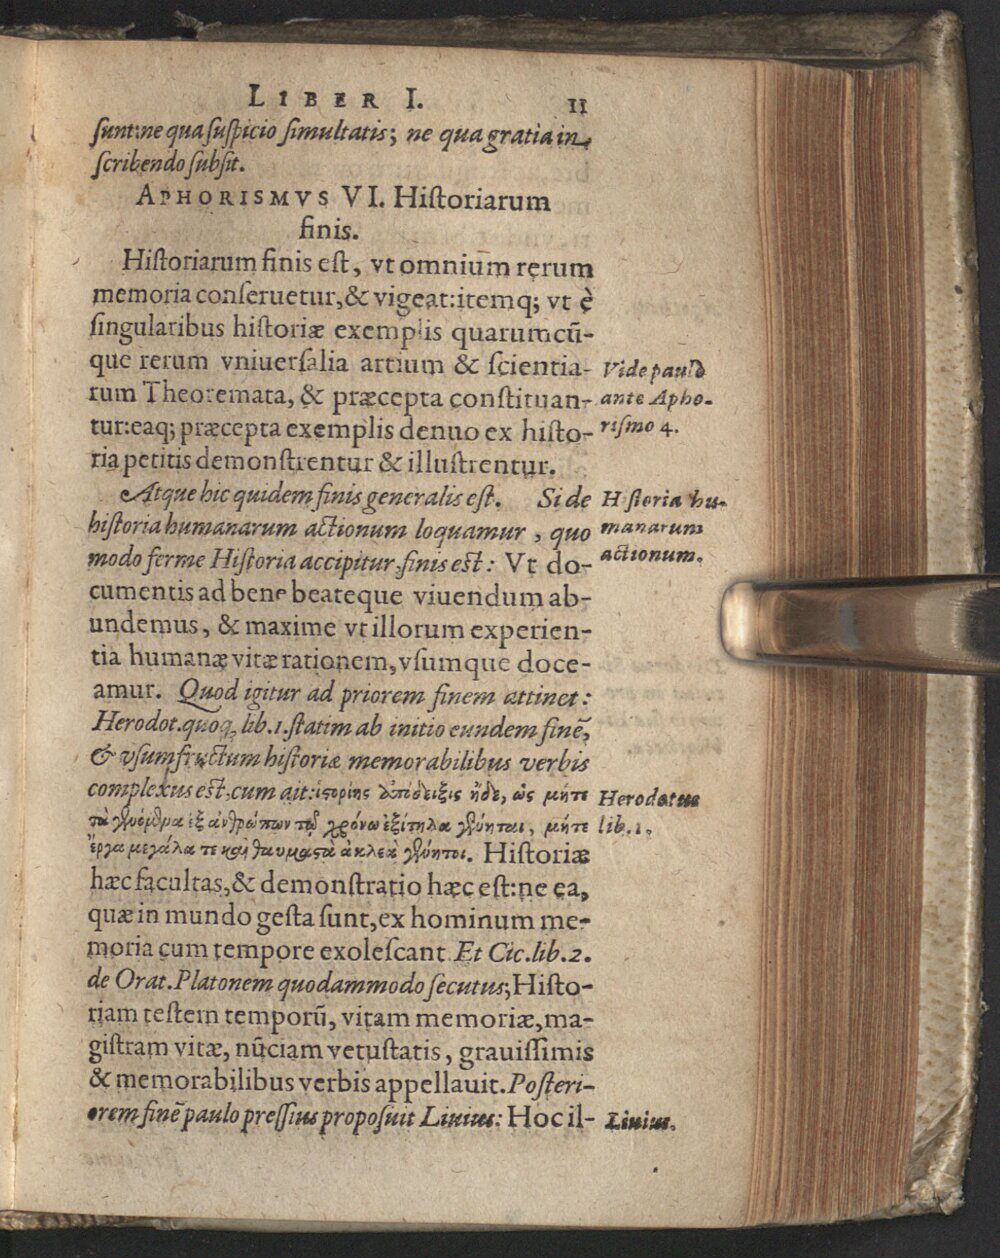 LIBER I. 11
sunt:ne qua suspicio simultatis; ne qua gratia in
scribendo subsit.
APHORISMVS VI. Historiarum
finis.
Historiarum finis est, vt omnium rerum
memoria conseruetur,& vigeat:itemq; vt è
singularibus historiæ exemplis quarumcũ-
que rerum vniuersalia artium & scientia-
rum Theoremata, & præcepta constituan-
tur:eaq; præcepta exemplis denuo ex histo-
ria petitis demonstrentur & illustrentur.
Vide paulò
ante Apho-
rismo 4.
Atque hic quidem finis generalis est. Si de
historia humanarum actionum loquamur, quo
modo ferme Historia accipitur,finis est: Vt do-
cumentis ad bene beateque viuendum ab-
undemus, & maxime vt illorum experien-
tia humanæ vitæ rationem, vsumque doce-
amur. Quod igitur ad priorem finem attinet:
Historia hu-
manarum
actionum.
Herodot.quoq, lib.1.statim ab initio eundem finẽ,
& vsumfructum historiæ memorabilibus verbis
complexus est,cum ait:ἱστορίης ἀπόδειξις ἥδε, ὡς μήτε
τὰ γενόμενα ἐξ ἀνθρώπων τῷ χρόνῳ ἐξίτηλα γένηται, μήτε
ἔργα μεγάλα τε καὶ θαυμαστὰ ἀκλεᾶ γένηται. Historiæ
Herodotus
lib.1.
hæc facultas,& demonstratio hæc est:ne ea,
quæ in mundo gesta sunt,ex hominum me-
moria cum tempore exolescant. Et Cic.lib.2.
de Orat.Platonem quodammodo secutus;Histo-
riam testem temporũ, vitam memoriæ,ma-
gistram vitæ, nũciam vetustatis, grauissimis
& memorabilibus verbis appellauit. Posteri-
orem finẽ paulo pressius proposuit Liuius: Hoc il-
Liuius.